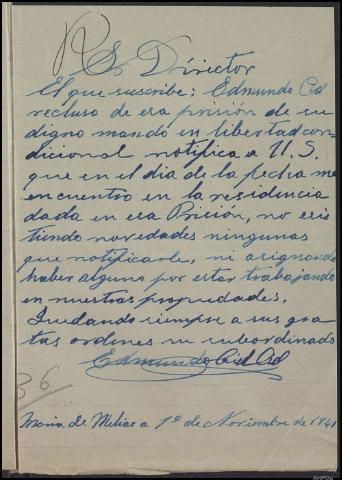 Sr Director
El que suscribe: Edmundo Cid
recluso de esa prisión de su
digno mando en libertad con-
dicional notifica a U.S.
que en el dia de la fecha me
encuentro en la residencia
dada en esa Prición, no exis
tiendo novedades ningunas
que notificarle, ni asignando
haber alguno por estar trabajando
en nuestras propiedades.
Quedando siempre a sus gra
tas ordenes su subordinado
Edmundo Cid Cid
36
de Melias a 1º de Noviembre de 1941